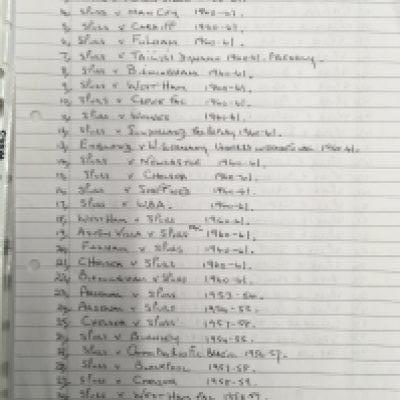 4, SPURS v MAN CITY 1960-61.
5, SPURS v CARDIFF 1960-61.
6, SPURS v FULHAM 1960-61.
7, SPURS v TBILISI DYNAMO 1960-61. FRIENDLY.
8, SPURS v BIRMINGHAM 1960-61.
9, SPURS v WEST HAM 1960-61.
10, SPURS v 1960-61.
11, SPURS v WOLVES 1960-61.
12, SPURS v SUNDERLAND REPLAY 1960-61.
13, ENGLAND v W. GERMANY INTERNATIONAL 1960-61.
14, SPURS v NEWCASTLE 1960-61.
15, SPURS v CHELSEA 1960-61.
16, SPURS v SHEFF WED 1960-61.
17, SPURS v W.B.A. 1960-61.
18, WEST HAM v SPURS 1960-61.
19, ASTON VILLA v SPURS 1960-61.
20, FULHAM v SPURS 1960-61.
21, CHELSEA v SPURS 1960-61.
22, BIRMINGHAM v SPURS 1960-61.
23, ARSENAL v SPURS 1953-54.
24, ARSENAL v SPURS
25, CHELSEA v SPURS 1957-58.
26, SPURS v BURNLEY
27, SPURS v 1956-57.
28, SPURS v BLACKPOOL 1957-58.
29, SPURS v CHELSEA 1958-59.
30, SPURS v WEST HAM